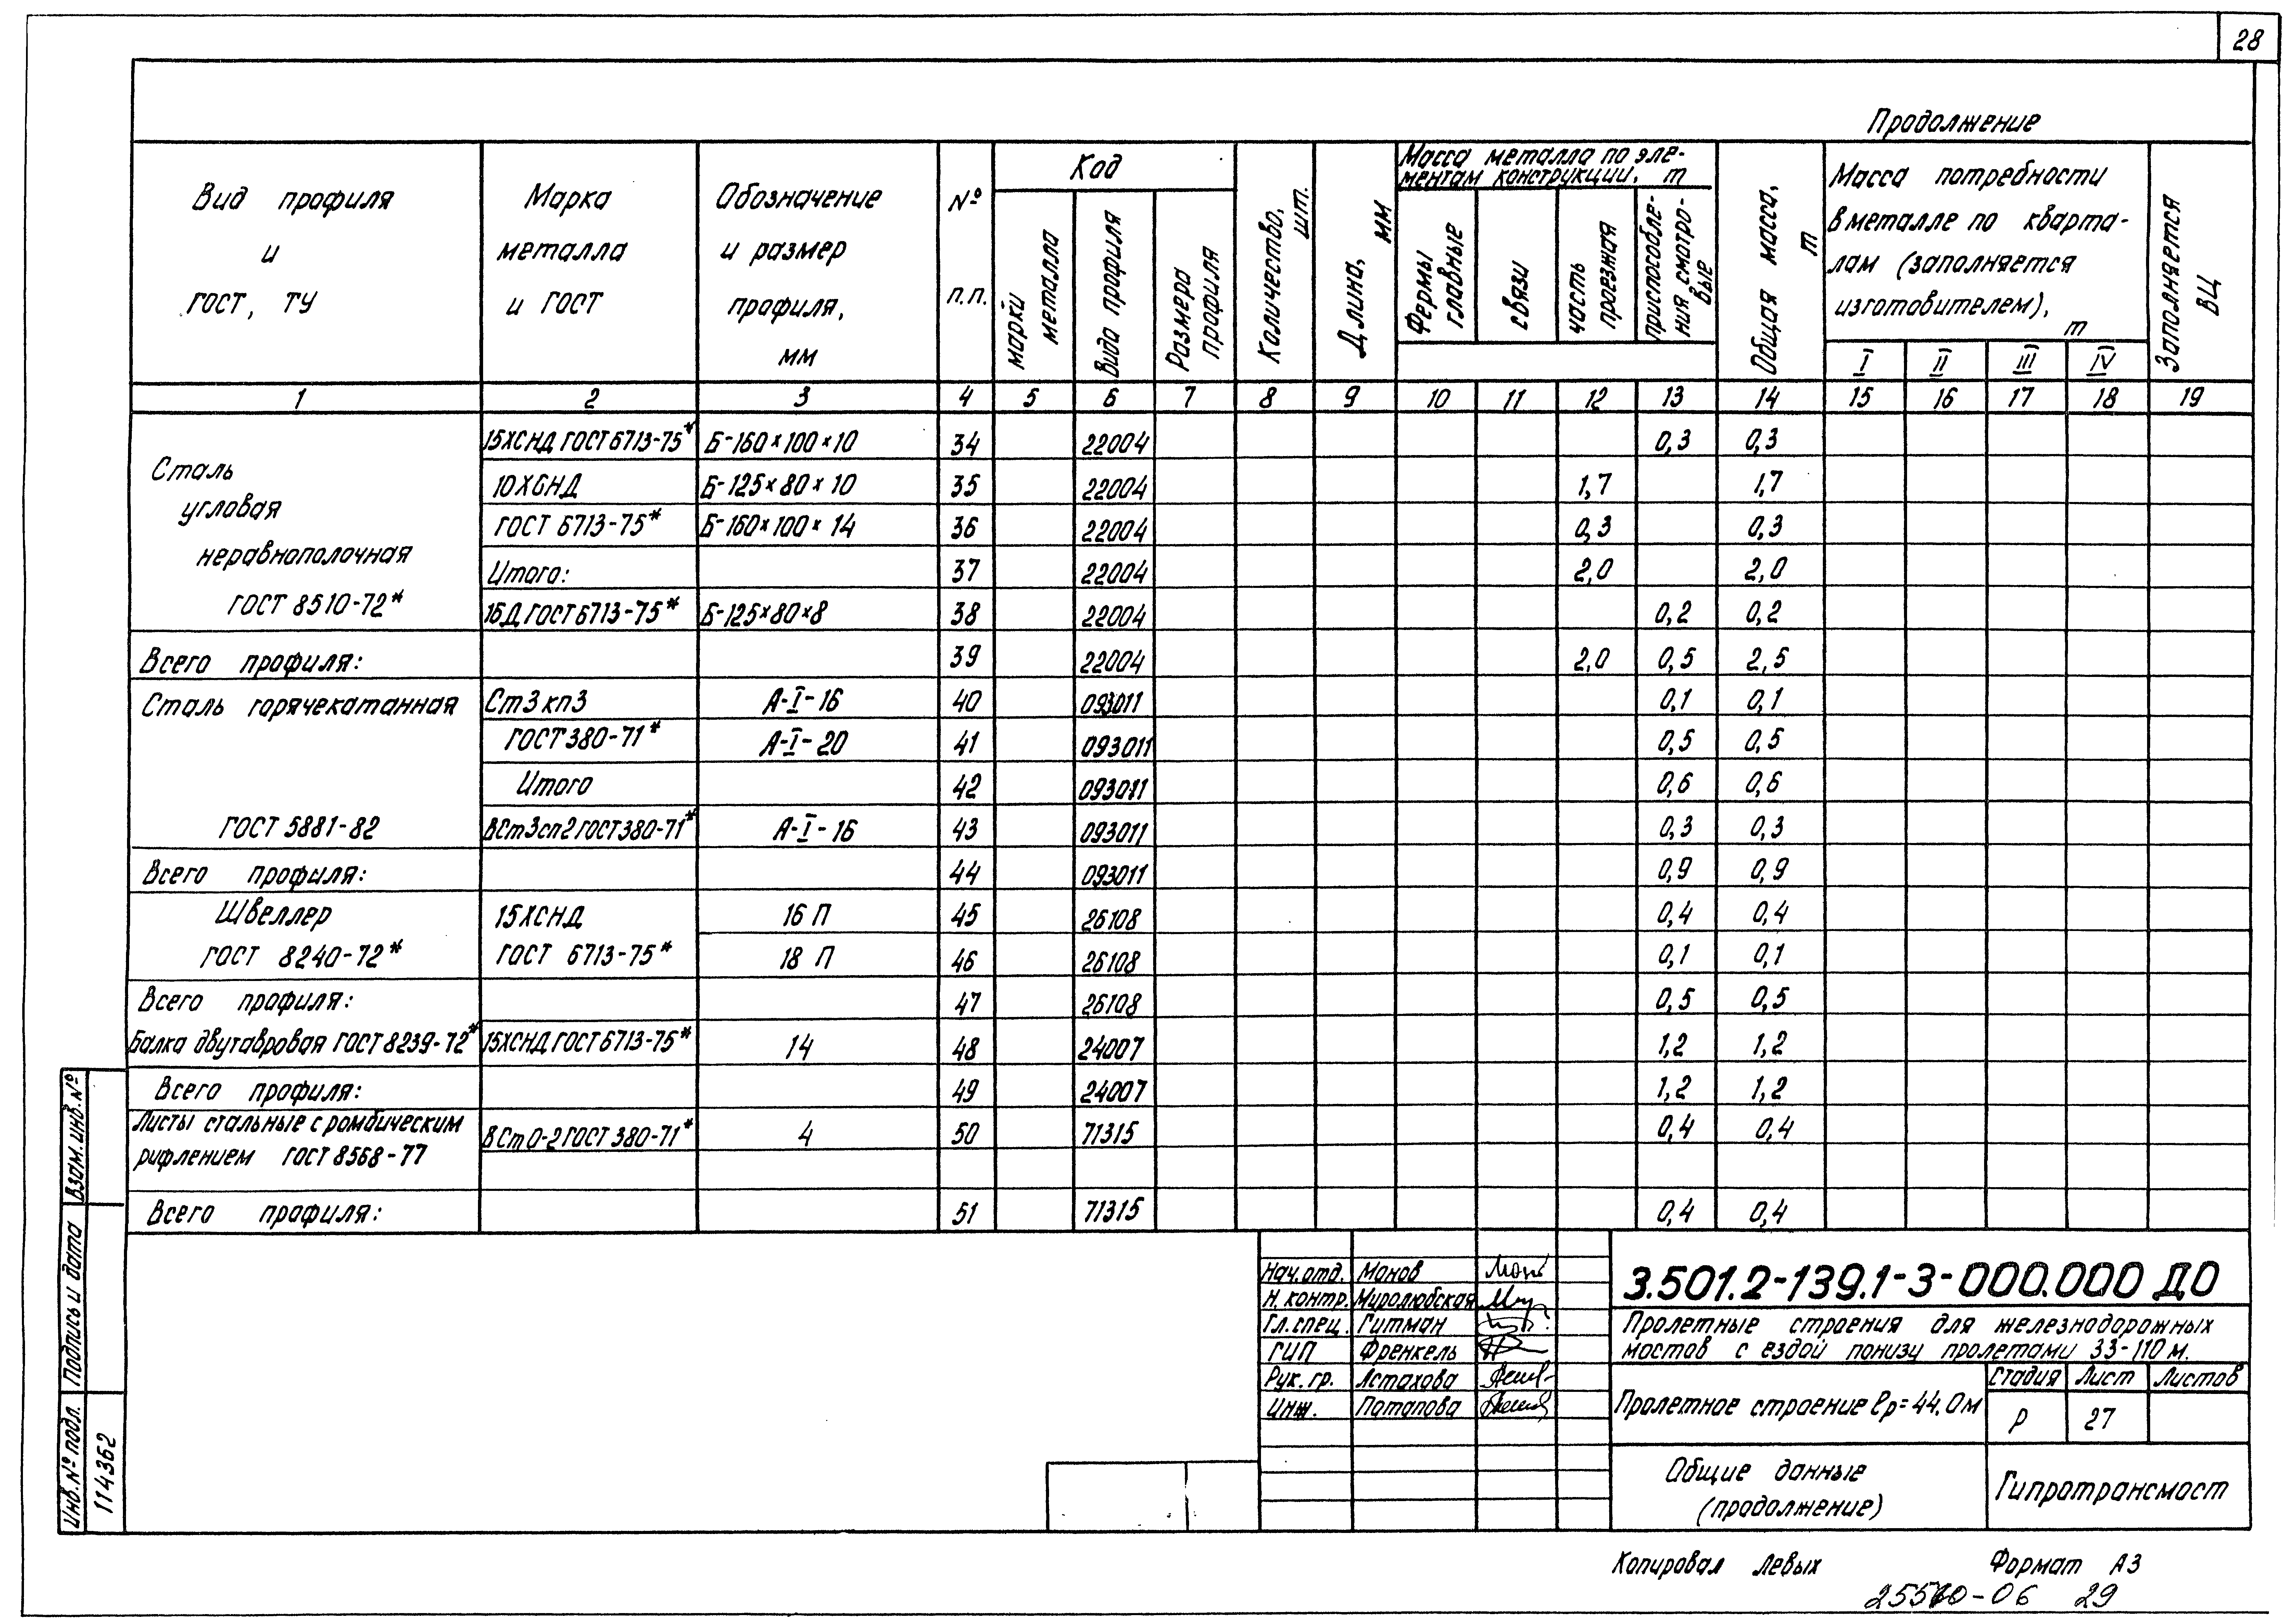 28
Продолжение
Вид профиля и ГОСТ, ТУ
Марка металла и ГОСТ
Обозначение и размер профиля, мм
№ п.п.
Код
марки металла
Вида профиля
Размера профиля
Количество, шт.
Длина, мм
Масса металла по элементам конструкции, т
Фермы главные
связи
часть проезжая
приспособления смотровые
Общая масса, т
Масса потребности в металле по кварталам (заполняется изготовителем), т
I II III IV
Заполняется ВЦ
1 2 3 4 5 6 7 8 9 10 11 12 13 14 15 16 17 18 19
Сталь угловая неравнополочная ГОСТ 8510-72*
15ХСНД ГОСТ 6713-75* Б-160×100×10 34 22004 0,3 0,3
10ХСНД Б-125×80×10 35 22004 1,7 1,7
ГОСТ 6713-75* Б-160×100×14 36 22004 0,3 0,3
Итого: 37 22004 2,0 2,0
16Д ГОСТ 6713-75* Б-125×80×8 38 22004 0,2 0,2
Всего профиля: 39 22004 2,0 0,5 2,5
Сталь горячекатанная Ст3кп3 А-I-16 40 093011 0,1 0,1
ГОСТ 380-71* А-I-20 41 093011 0,5 0,5
Итого 42 093011 0,6 0,6
ГОСТ 5881-82 ВСт3сп2 ГОСТ 380-71* А-I-16 43 093011 0,3 0,3
Всего профиля: 44 093011 0,9 0,9
Швеллер 15ХСНД 16 П 45 26108 0,4 0,4
ГОСТ 8240-72* ГОСТ 6713-75* 18 П 46 26108 0,1 0,1
Всего профиля: 47 26108 0,5 0,5
Балка двутавровая ГОСТ 8239-72* 15ХСНД ГОСТ 6713-75* 14 48 24007 1,2 1,2
Всего профиля: 49 24007 1,2 1,2
Листы стальные с ромбическим
рифлением ГОСТ 8568-77 ВСт0-2 ГОСТ 380-71* 4 50 71315 0,4 0,4
Всего профиля: 51 71315 0,4 0,4
Взам. инв. №
Подпись и дата
Инв. № подл.
114362
Нач. отд. Монов
Н. контр. Миролюбская
Гл. спец. Гитман
ГИП Френкель
Рук. гр. Астахова
Инж. Потапова
3.501.2-139.1-3-000.000 ДО
Пролетные строения для железнодорожных
мостов с ездой понизу пролетами 33-110 м.
Пролетное строение lр=44,0м
Стадия Лист Листов
Р 27
Общие данные
(продолжение)
Гипротрансмост
Копировал Левых Формат А3
29